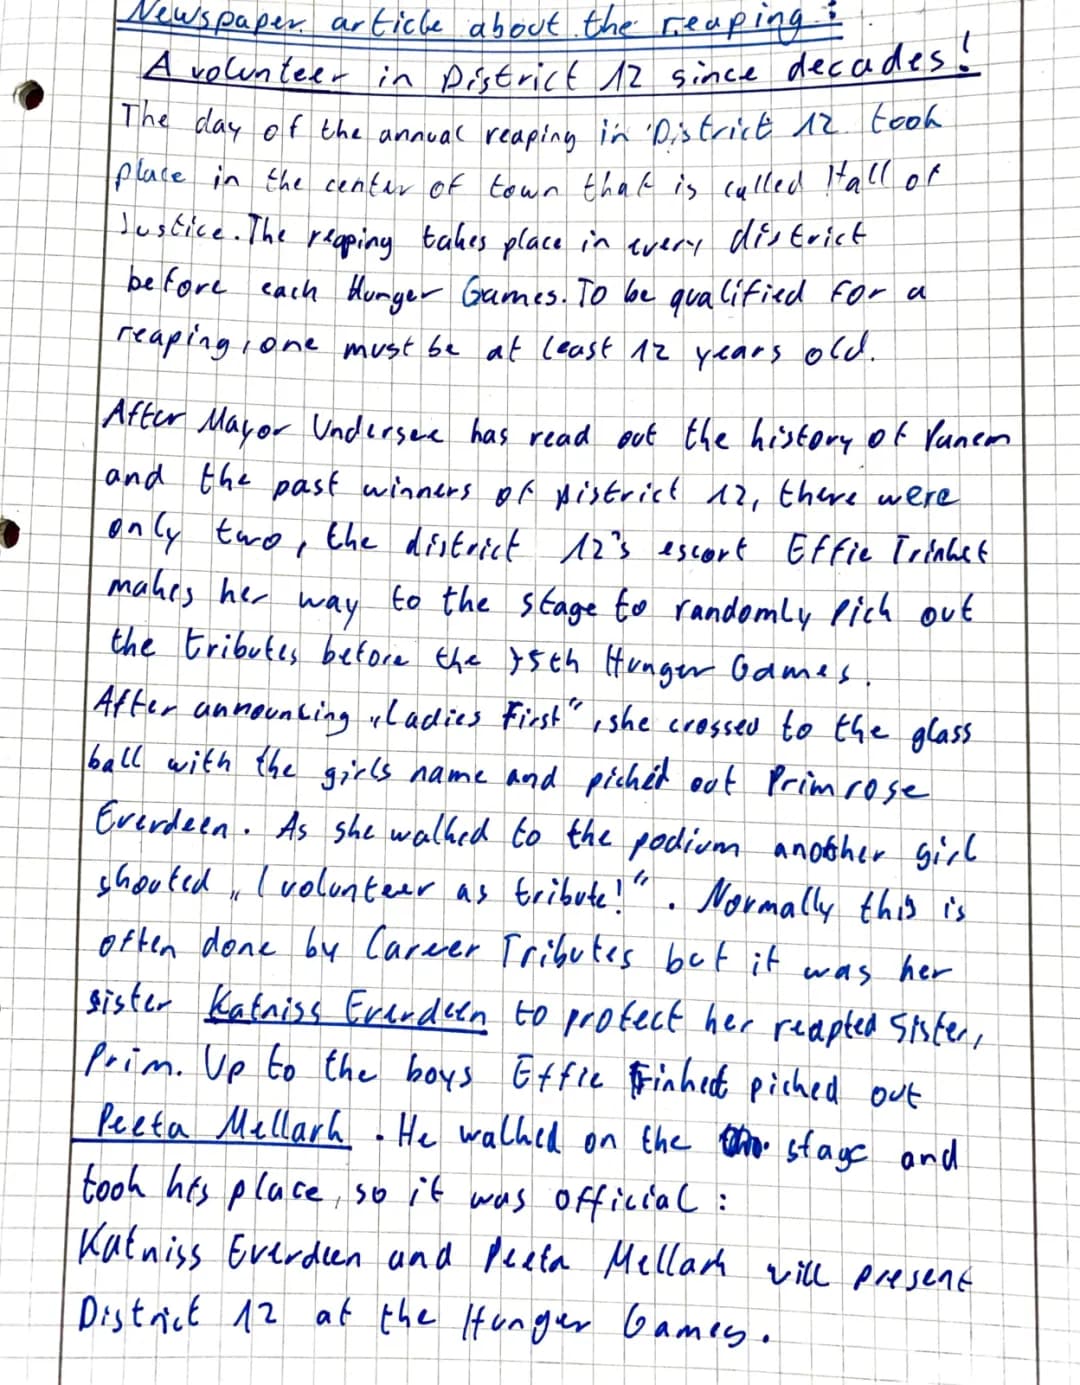 Newspaper article about the reaping:
A volunteer in District 12 since decades!
The day of the annual reaping in District 12 took
place in the center of town that is called Hall of
Justice. The reaping takes place in every district
before each Hunger Games. To be qualified for a
reaping, one must be at least 12 years old.
After Mayor Undersee has read out the history of Panem
and the past winners of District 12, there were
only two, the district 12's escort Effie Trinket
makes her way to the stage to randomly pick out
the tributes before the 75th Hunger Games.
After announcing „Ladies First“, she crossed to the glass
ball with the girls name and picked out Primrose
Everdeen. As she walked to the podium another girl
shouted „I volunteer as tribute!“. Normally this is
often done by Career Tributes but it was her
sister Katniss Everdeen to protect her reapted sister,
Prim. Up to the boys Effie Trinket picked out
Peeta Mellark. He walked on the stage and
took his place, so it was official:
Katniss Everdeen and Peeta Mellark will present
District 12 at the Hunger Games.